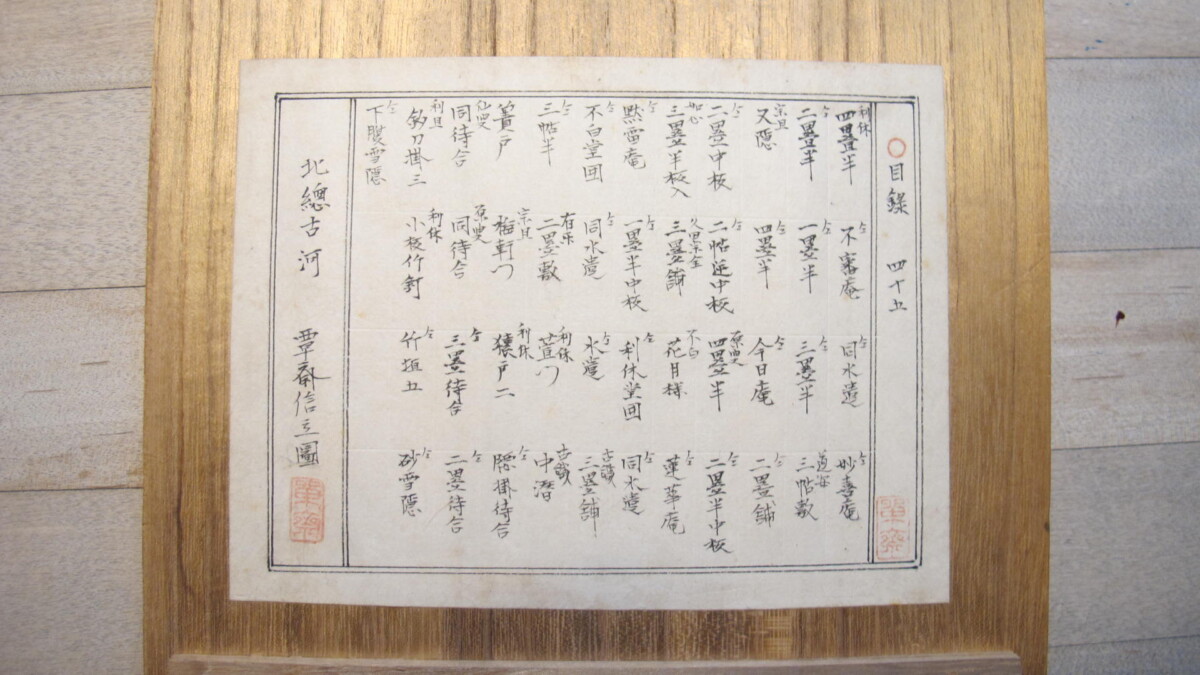 ○目錄 四十五
利休 四疊半 仝 不審庵 仝 同水遣 仝 妙喜庵
仝 二疊半 仝 一疊半 仝 三疊半 道安 三帖敷
宗旦 又隠 仝 四疊半 仝 今日庵 仝 二疊鋪
仝 二疊中板 仝 二帖逆中板 原叟 四疊半 仝 二疊半中板
如心 三疊半板入 久田宗全 三疊鋪 不白 花月樓 仝 蓮華庵
仝 黙雷庵 仝 一疊半中板 仝 利休堂囲 仝 同水遣
仝 不白堂囲 仝 同水遣 仝 水遣 古織 三疊鋪
仝 三帖半 有楽 二疊敷 利休 萱门 古織 中潜
仝 簀戸 宗旦 梅軒门 利休 猿戸二 仝 腰掛待合
仙叟 同待合 原叟 同待合 仝 三疊待合 仝 二疊待合
刀掛三 利休 小板竹釘 仝 竹垣五 仝 砂雪隠
仝 下腹雪隠
北總古河 覃斎信立圖